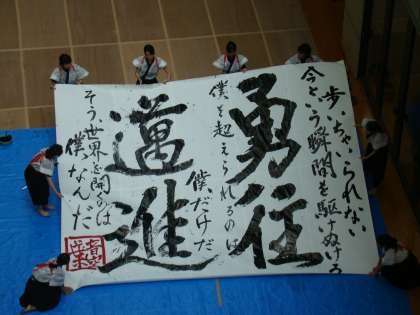 歩いちゃいられない
今という瞬間を駆けぬけろ
勇往
僕を超えられるのは
僕だけだ
邁進
そう、世界を開くのは
僕なんだ